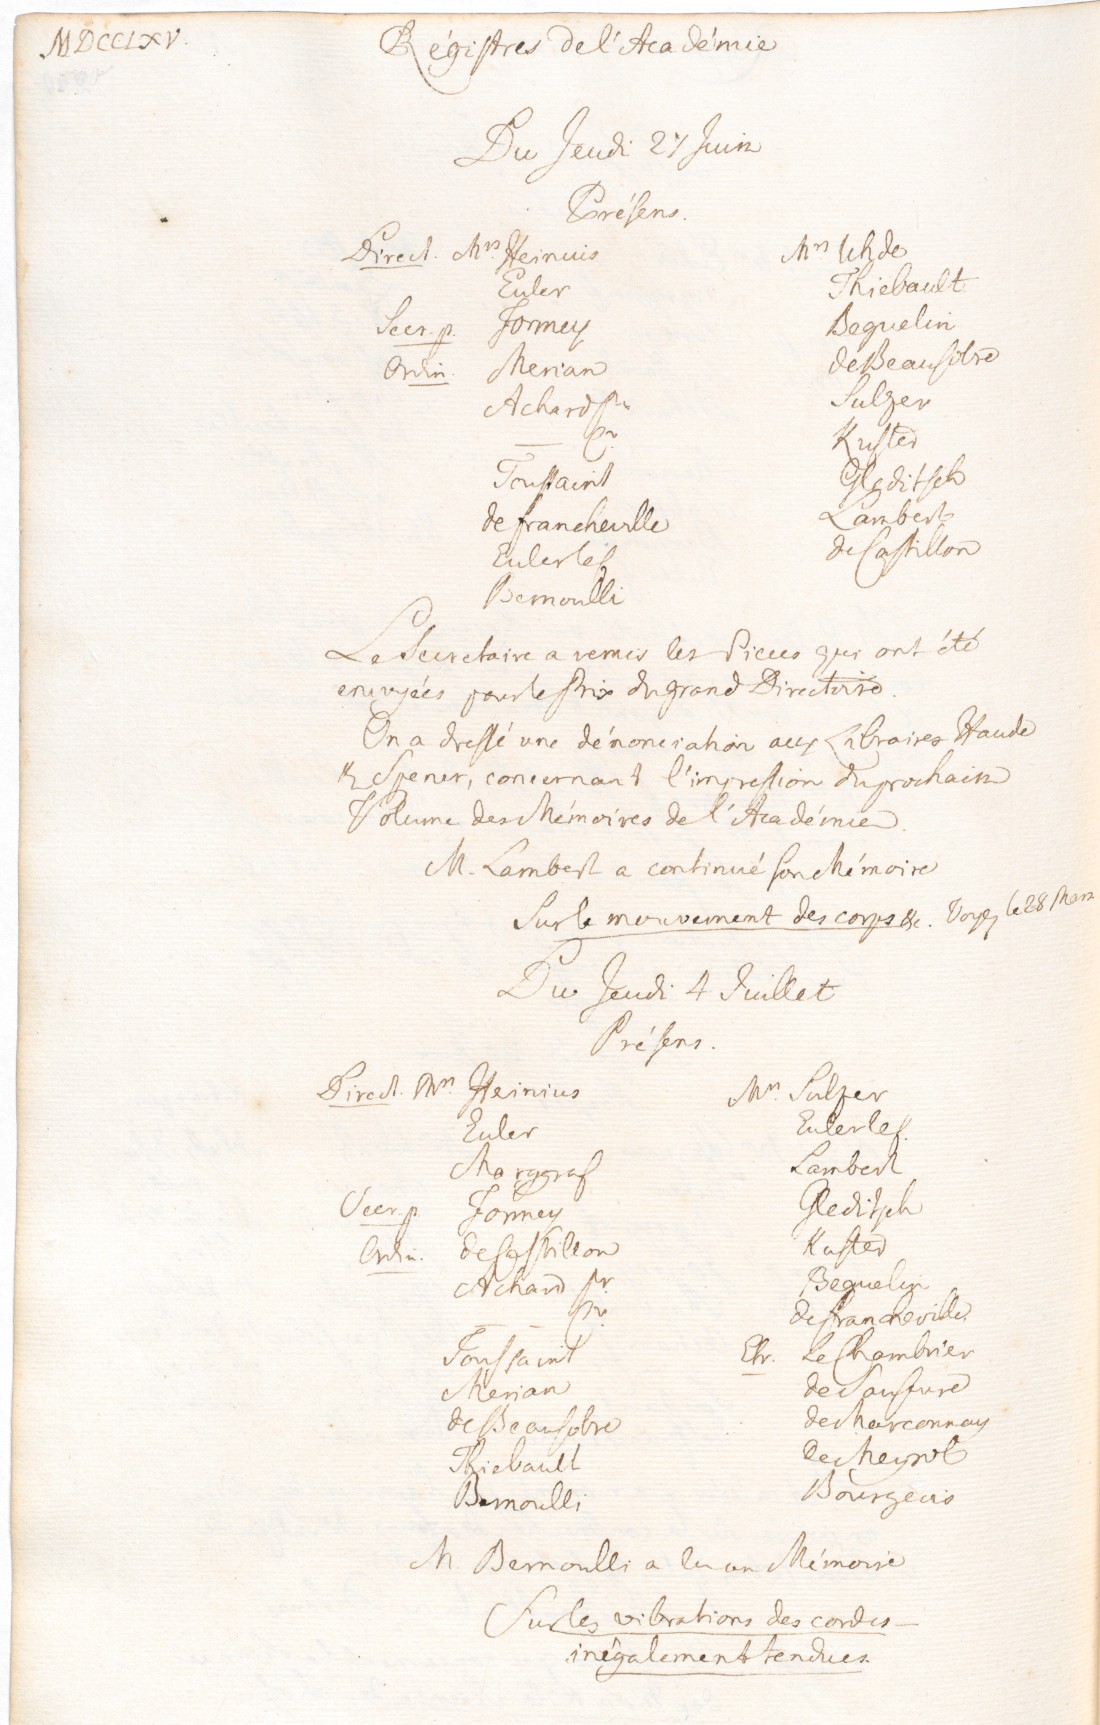 MDCCLXV.
Régistres de l'Académie
Du Jeudi 27 Juin
Présens.
Direct. Mrs Heinius
Euler
Secr. p. Formey
Ordin. Merian
Achard Sr
— Jr.
Toussaint
de francheville
Euler le f.
Bernoulli
Mrs Uhde
Thiebault
Beguelin
de Beausobre
Sulzer
Kuster
Gleditsch
Lambert
de Castillon
Le Secretaire a remis les Pieces qui ont été
envoyées pour le Prix du grand Directoire.
On a dressé une dénonciation aux Libraires Haude
& Spener, concernant l'impression du prochain
Volume des Mémoires de l'Académie.
M. Lambert a continué son Mémoire
Sur le mouvement des corps &c. Voyez le 28 Mars
Du Jeudi 4 Juillet
Présens.
Direct. Mrs. Heinius
Euler
Marggraf
Secr. p. Formey
Ordin. de Castillon
Achard Sr.
— — Jr.
Toussaint
Merian
de Beausobre
Thiebault
Bernoulli
Mrs. Sulzer
Euler le f.
Lambert
Gleditsch
Kuster
Beguelin
de francheville.
Etr. Le Chambrier
de Saussure
de Marconnay
de Meyrol
Bourgeois
M. Bernoulli a lu un Mémoire
Sur les vibrations des cordes
inégalement tendues.